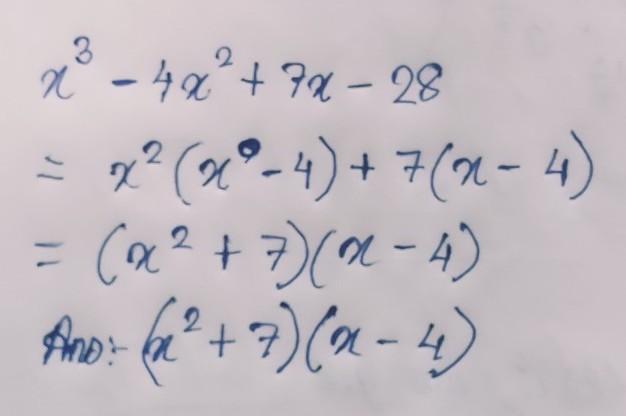 x³ - 4x² + 7x - 28
= x²(x - 4) + 7(x - 4)
= (x² + 7)(x - 4)
Ans:- (x² + 7)(x - 4)